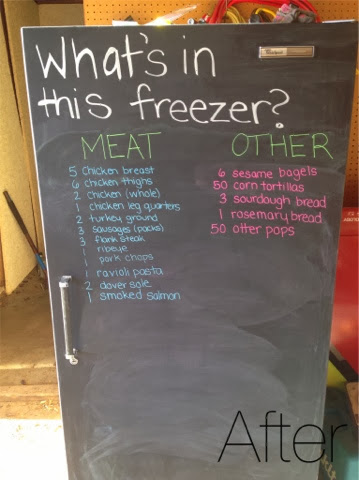 What's in
this freezer?
MEAT
5 chicken breast
6 chicken thighs
2 chicken (whole)
1 chicken leg quarters
2 turkey ground
3 sausages (packs)
3 flank steak
ribeye
1 pork chops
1 ravioli pasta
2 dover sole
1 smoked salmon
OTHER
6 sesame bagels
50 corn tortillas
3 sourdough bread
1 rosemary bread
50 otter pops
After